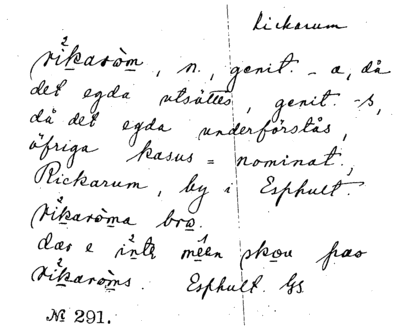 Rickarum
rikaròm, n., genit. -a, då
det egda utsättes, genit. -s,
då det egda underförstås,
öfriga kasus = nominat.,
Rickarum, by i Esphult.
rikaròma bro.
dær e inte méen skou fras
rikaròms. Esphult. GS.
№ 291.